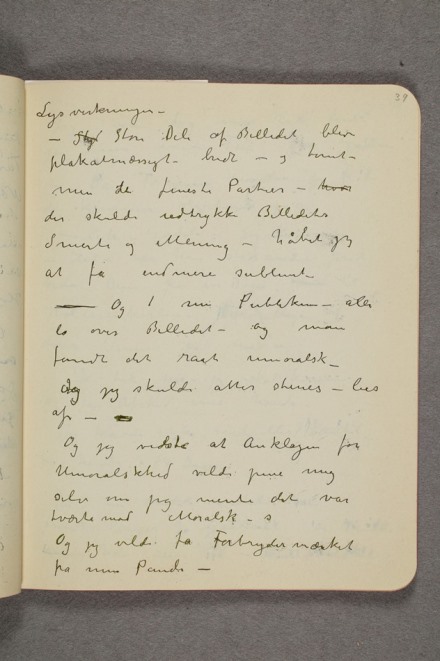 39
Lysvirkninger –
– Store Dele af Billedet blev
plakatmæssigt – bredt – og tomt –
men de fineste Partier –
der skulde udtrykke Billedets
Smerte og Mening – håbet jeg
at få endmere sublimt
– Og! nu Publikum – alle
lo over Billedet – og man
fandt det raat umoralsk –
Og jeg skulde atter stenes – 
af –
Og jeg vidste at Anklagen for
Umoralskhed vilde pine mig
selv om jeg mente det var
tværtemod Moralsk –
Og jeg vilde få Forbrydermærket
på min Pande –